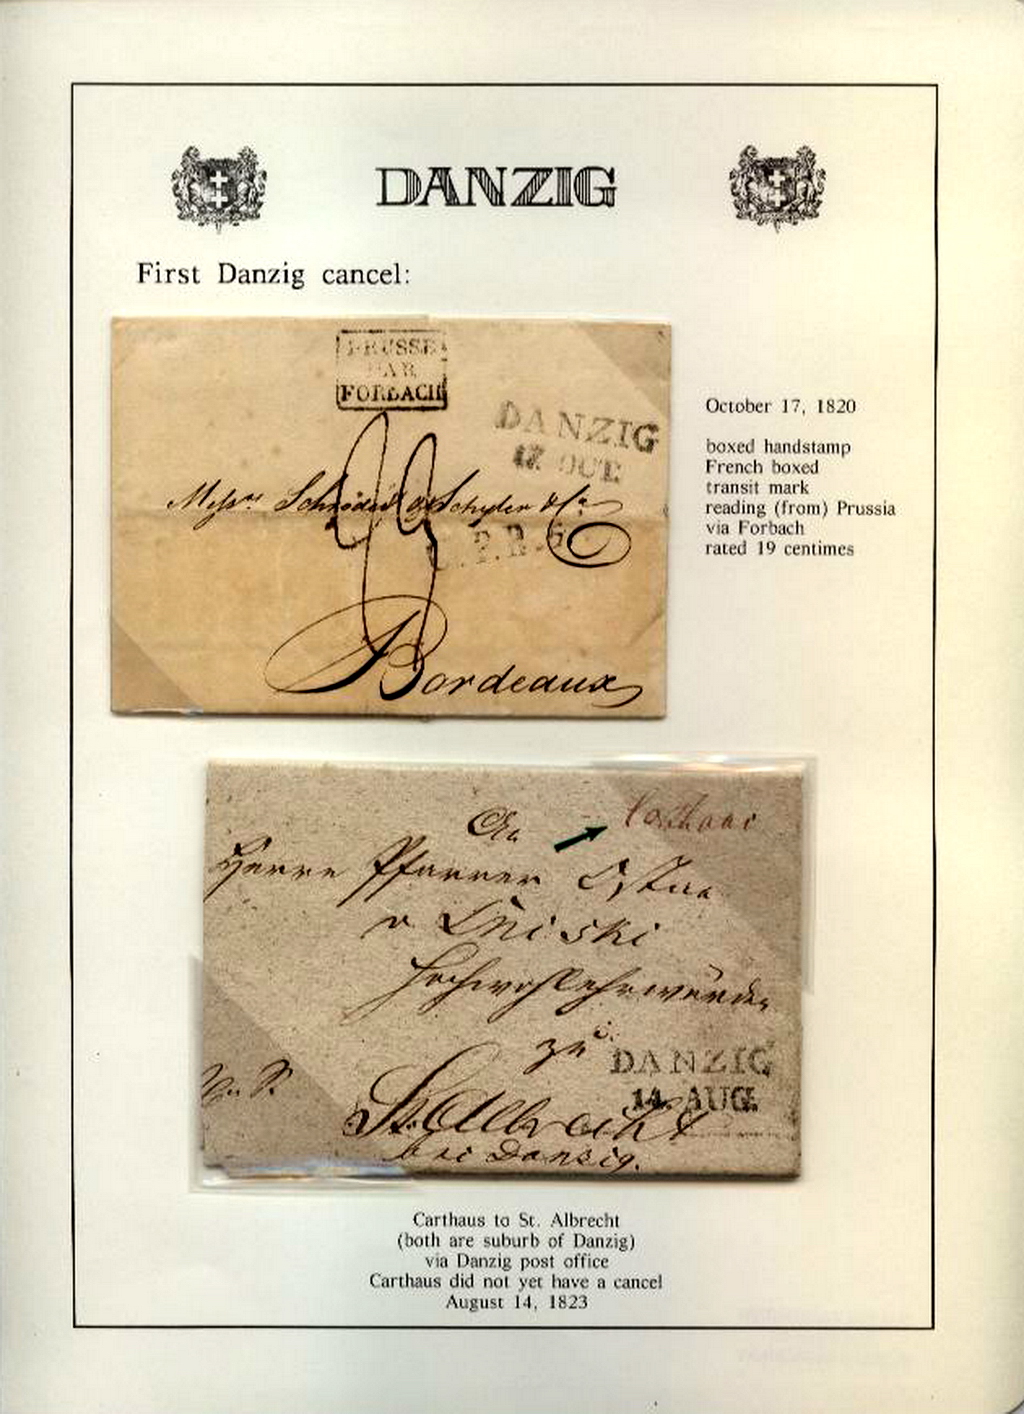 DANZIG
First Danzig cancel:
PRUSSE
PAR
FORBACH
DANZIG
17 OCT.
October 17, 1820
boxed handstamp
French boxed
transit mark
reading (from) Prussia
via Forbach
rated 19 centimes
Messrs Schröder & Schyler & Co
Bordeaux
An
Carthaus
Herrn Pfarrer
v
Hochwohlehrwürden
zu
DANZIG
14. AUG.
St. Albrecht
bei Danzig.
Carthaus to St. Albrecht
(both are suburb of Danzig)
via Danzig post office
Carthaus did not yet have a cancel
August 14, 1823